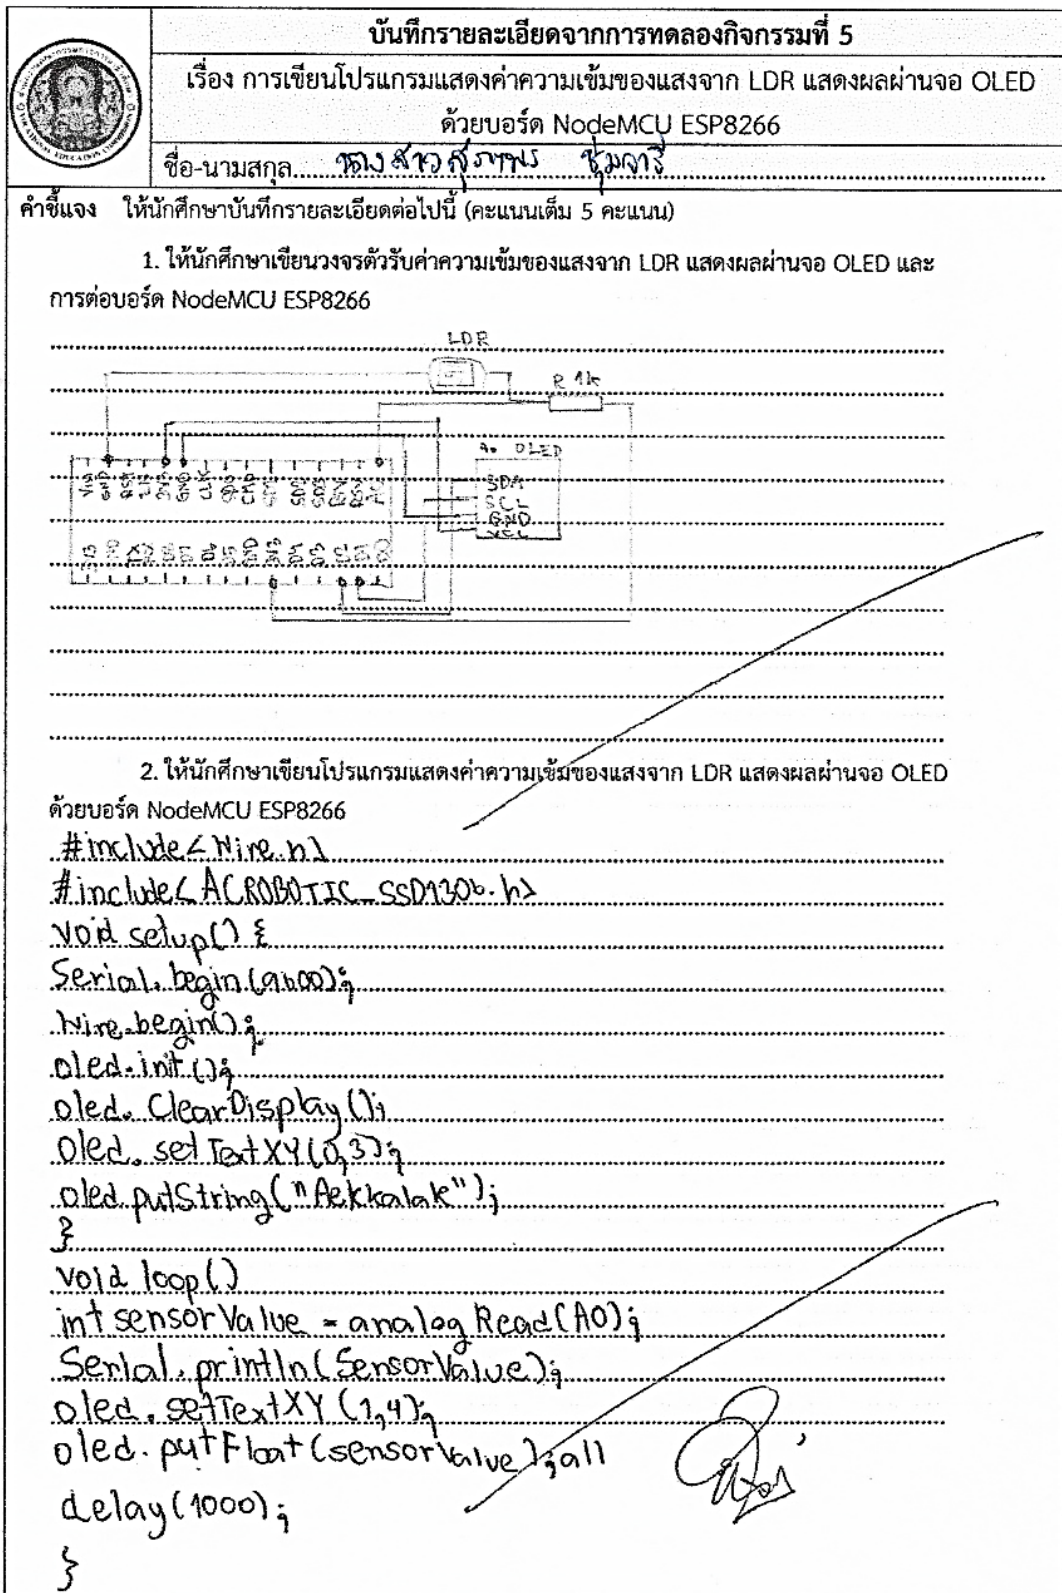 บันทึกรายละเอียดจากการทดลองกิจกรรมที่ 5
เรื่อง การเขียนโปรแกรมแสดงค่าความเข้มของแสงจาก LDR แสดงผลผ่านจอ OLED
ด้วยบอร์ด NodeMCU ESP8266
ชื่อ-นามสกุล นางสาวสุภาพร
คำชี้แจง ให้นักศึกษาบันทึกรายละเอียดต่อไปนี้ (คะแนนเต็ม 5 คะแนน)
1. ให้นักศึกษาเขียนวงจรตัวรับค่าความเข้มของแสงจาก LDR แสดงผลผ่านจอ OLED และ
การต่อบอร์ด NodeMCU ESP8266
LDR
R 1k
จอ OLED
SDA
SCL
GND
VCC
2. ให้นักศึกษาเขียนโปรแกรมแสดงค่าความเข้มของแสงจาก LDR แสดงผลผ่านจอ OLED
ด้วยบอร์ด NodeMCU ESP8266
#include<Wire.h>
#include<ACROBOTIC_SSD1306.h>
void setup() {
Serial.begin(9600);
Wire.begin();
oled.init();
oled. ClearDisplay();
Oled. setTextXY(0,3);
oled.putString("Aekkalak");
}
void loop()
int sensorValue = analogRead(A0);
Serial.println(SensorValue);
oled. setTextXY (1,4);
oled. putFloat(sensorValue);all
delay(1000);
}